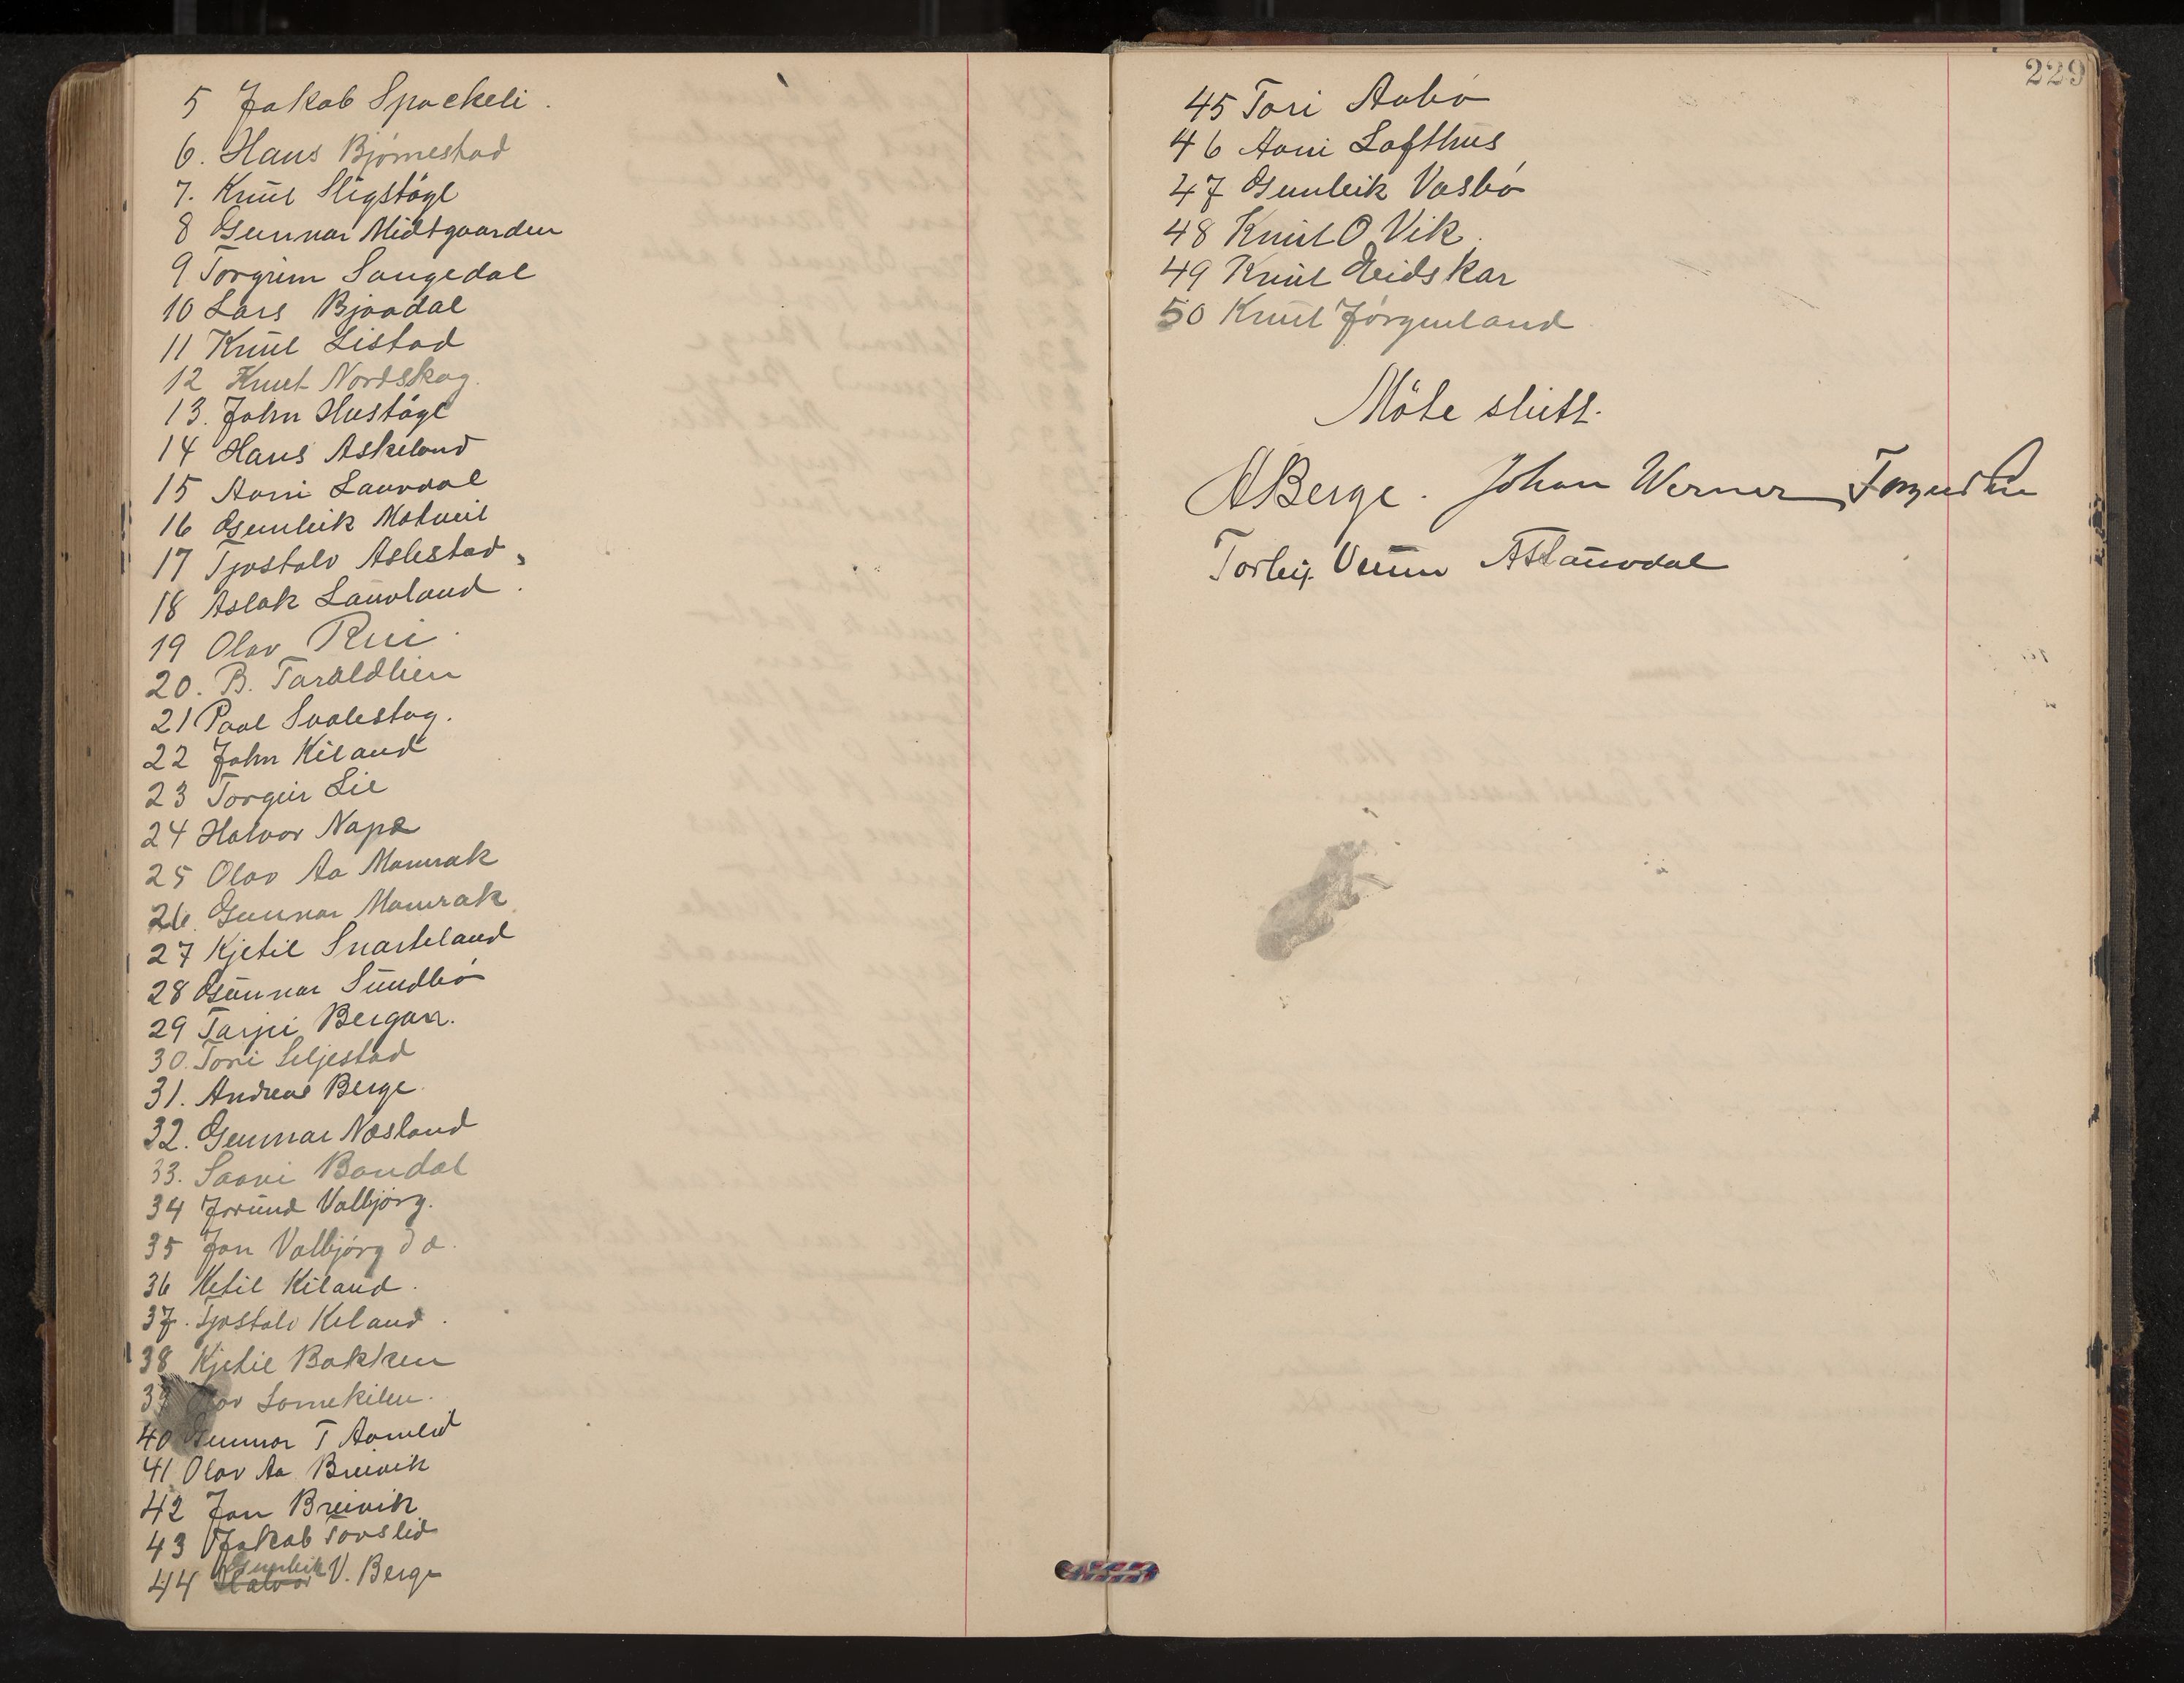 5 Jakob Spockeli.
6. Hans Bjørnestad
7. Knut Stigstøyl
8 Gunnar Midtgaarden
9 Torgrim Songedal
10 Lars Bjaadal
11 Knut Listad
12 Knut Nordskog.
13. John Hustøyl
14 Hans Askiland
15 Aani Lauvdal
16 Gunleik Motveit
17 Tjostolv Aslestad
18 Aslak Lauvland.
19 Olav Rui.
20. B. Taraldlien
21 Paal Svalestog.
22 John Kiland
23 Torgeir Lie
24 Halvor Nape
25 Olav Aa Momrak
26. Gunnar Momrak
27 Kjetil Snarteland
28 Gunnar Sundbö
29 Tarjei Bergan.
30. Tori Seljestad
31. Andreas Berge.
32. Gunnar Nesland
33. Saavi Bondal
34 Jorund Valbjørg.
35 Jon Valbjørg d a.
36 Ketil Kiland.
37. Tjostolv Kiland.
38 Kjetil Bakken
39 Olav Lomekilen.
40 Gunnar T Aamlid
41 Olav Aa Breivik
42 Jon Breivik
43 Jakob Tovslid
44 Gunleik V. Berge
229
45 Tori Aabö
46 Aani Lofthus
47 Gunleik Vasbö
48 Knut O Vik.
49 Knut Eidskar
50 Knut Jørgenland
Möte slutt.
A Berge. Johan Werner
Torleif Veum A T Lauvdal